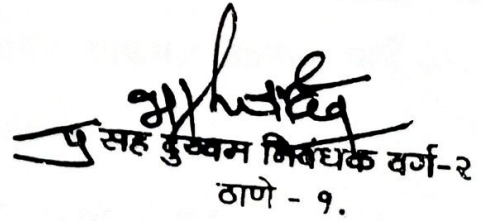 प्र सह दुय्यम निबंधक वर्ग-२
ठाणे - १.